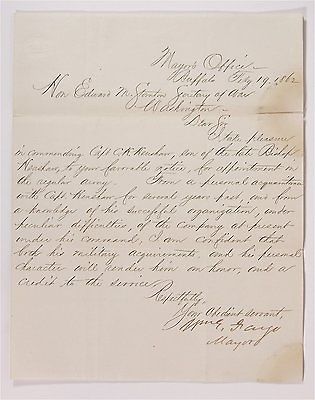 Mayor's Office
Buffalo Feby 19, 1862
Hon Edward M. Stanton Secretary of War
Washington
Dear Sir
I take pleasure
in commending Capt. C. K. Henshaw, son of the late Bishop
Henshaw, to your favorable notice, for appointment in
the regular army. From a personal acquaintance
with Capt. Henshaw for several years past, and from
a knowledge of his successful organization, under
peculiar difficulties, of the Company at present
under his command, I am confident that
both his military acquirements, and his personal
character will render him an honor, and a
credit to the service
Respectfully,
Your Obedient servant,
Wm G. Fargo
Mayor